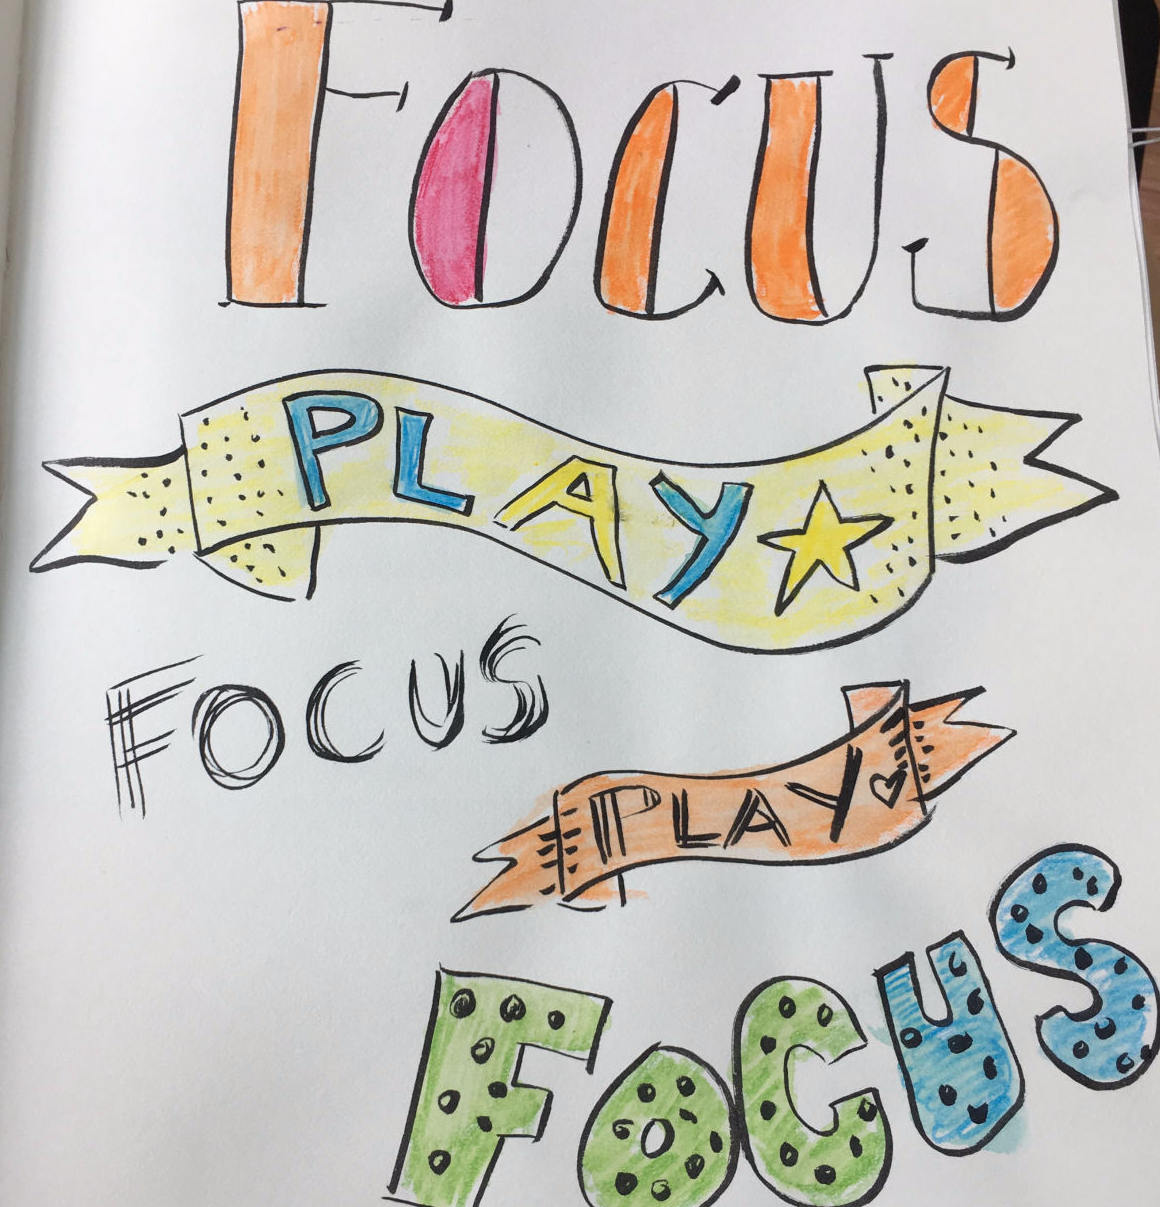 FOCUS
PLAY
FOCUS
PLAY
FOCUS